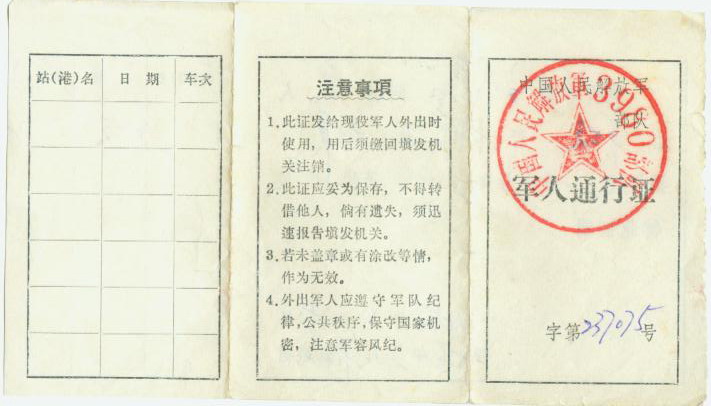 站(港)名 日 期 车次
注意事項
1. 此证发给现役军人外出时
使用，用后须缴回填发机
关注销。
2. 此证应妥为保存，不得转
借他人，倘有遗失，须迅
速报告填发机关。
3. 若未盖章或有涂改等情，
作为无效。
4. 外出军人应遵守军队纪
律，公共秩序，保守国家机
密，注意军容风纪。
中国人民解放军
部队
中国人民解放军3980部队
军人通行证
字第237075号